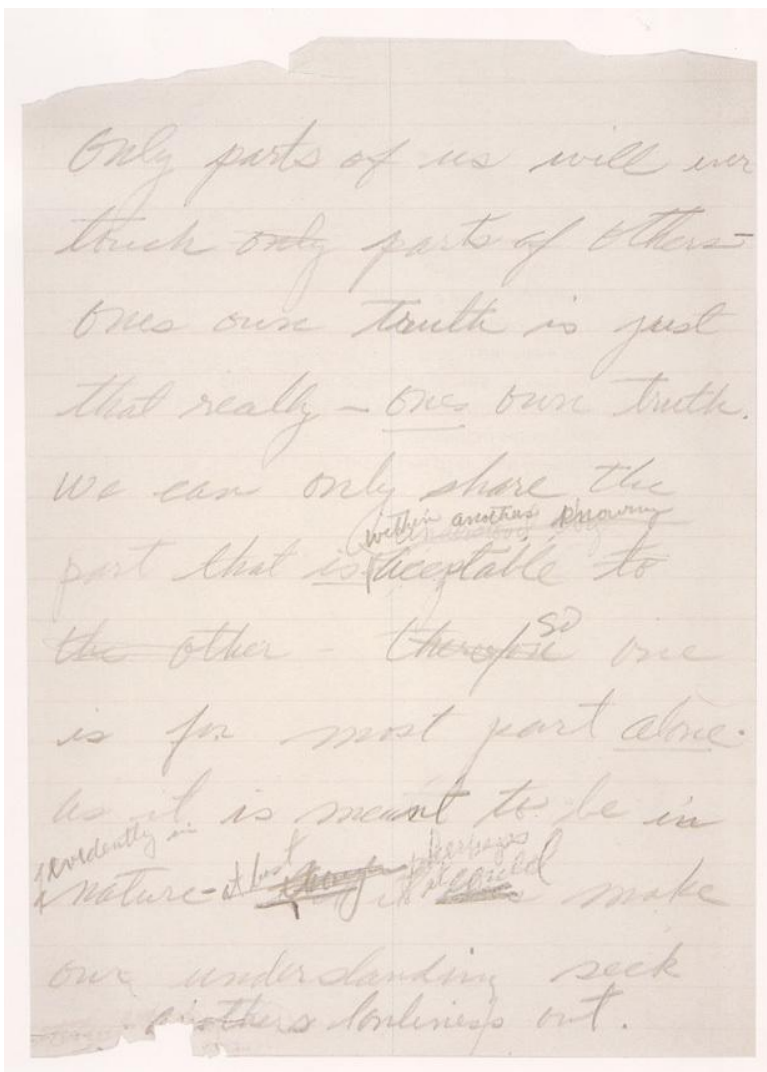 Only parts of us will ever
touch only parts of others –
ones own truth is just
that really – ones own truth.
We can only share the
within anothers knowing
part that is acceptable to
the other – therefore so one
is for most part alone.
As it is meant to be in
evidently in
nature – at best perhaps
it could make
our understanding seek
anothers lonliness out.